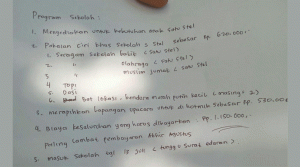 Program Sekolah :
1. Mengadakan untuk kebutuhan anak satu stel
2. Pakaian Ciri khas Sekolah 2 Stel sebesar Rp 600.000.-
1. Seragam sekolah batik (satu stel)
2. " olahraga (satu stel)
3. " muslim jumat (satu stel
4. Topi
5. Dasi
6. Bat lokasi, bendera merah putih kecil, (masing2)
3. Mengalihkan lapangan upacara
4. Biaya keseluruhan yang harus dikeluarkan Rp. 1.100.000,-
paling lambat pembayaran Akhir Agustus
5. Masuk sekolah tgl 15 juli (tunggu surat edaran)